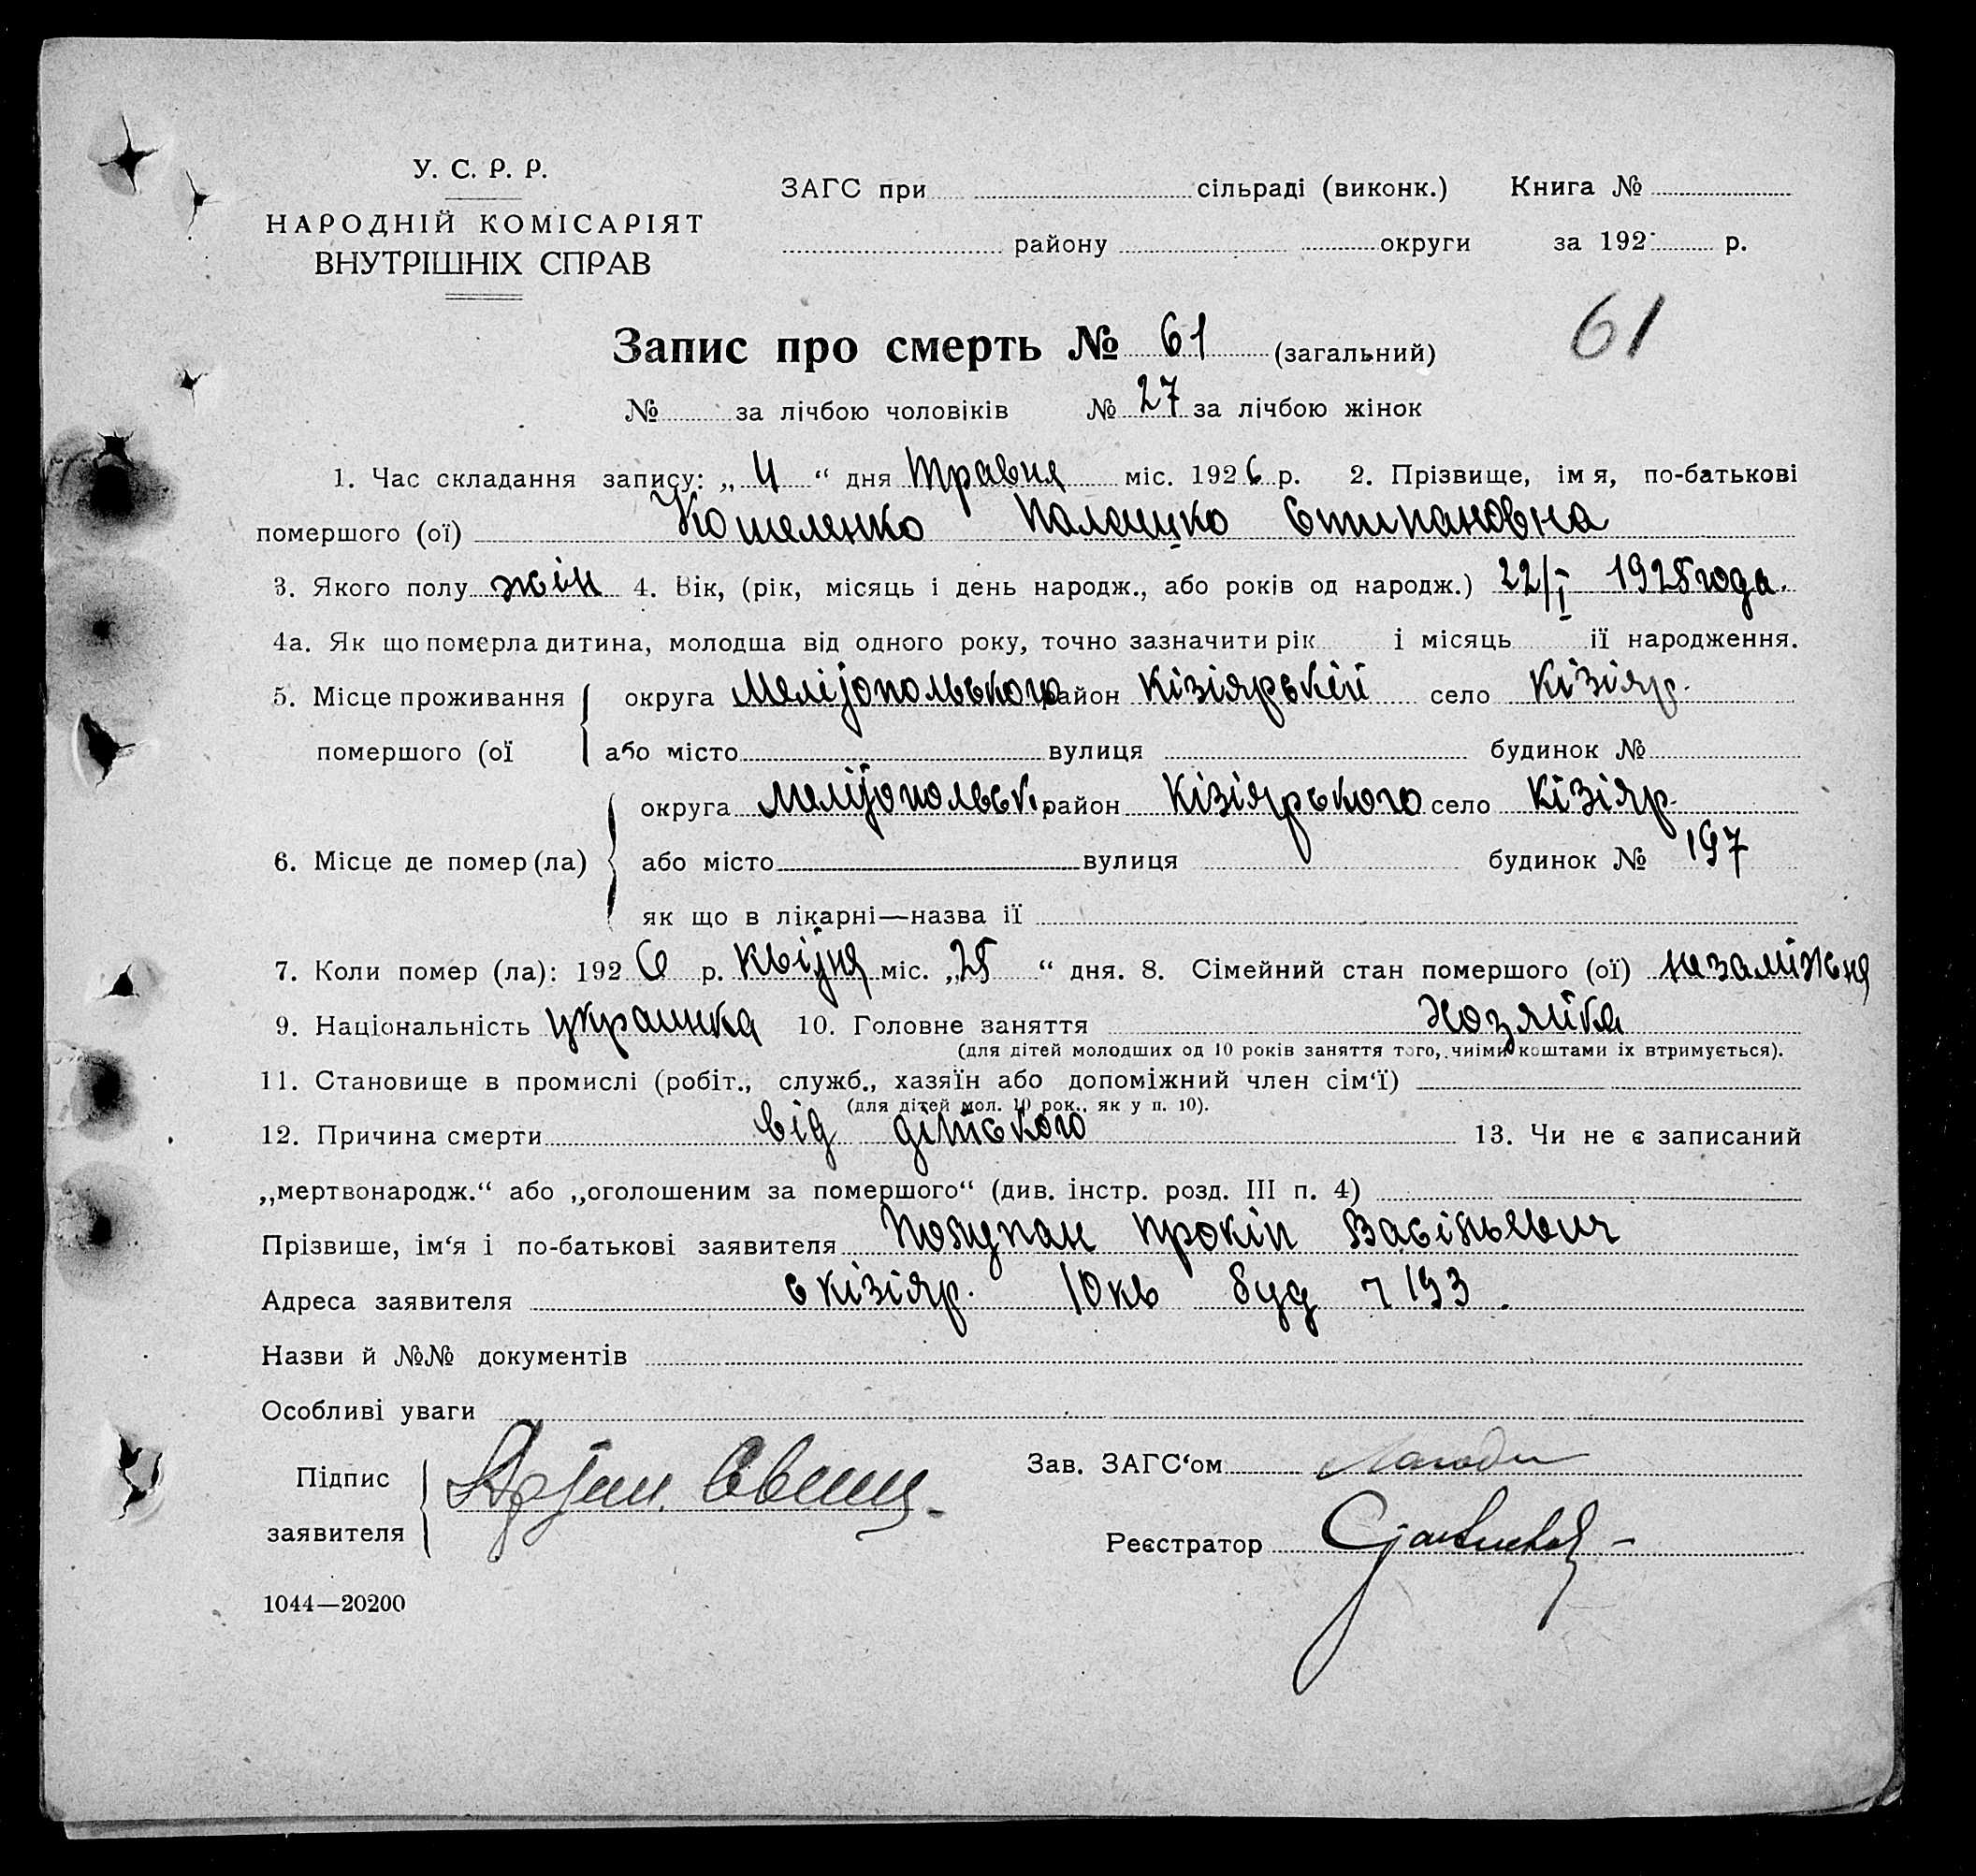 У. С. Р. Р.
НАРОДНІЙ КОМІСАРІЯТ
ВНУТРІШНІХ СПРАВ
ЗАГС при сільраді (виконк.) Книга №
району округи за 192 р.
Запис про смерть № 61 (загальний) 61
№ за лічбою чоловіків № 27 за лічбою жінок
1. Час складання запису: „ 4 “ дня травня міс. 1926 р. 2. Прізвище, імя, по-батькові
помершого (ої) Кошеленко Степановна
3. Якого полу жін 4. Вік, (рік, місяць і день народж., або років од народж.) 22/I 1925 года.
4а. Як що померла дитина, молодша від одного року, точно зазначити рік і місяць її народження.
5. Місце проживання округа Мелітопольського район Кізіярській село Кізіяр.
помершого (ої або місто вулиця будинок №
округа Мелітопольськ. район Кізіярського село Кізіяр.
6. Місце де помер (ла) або місто вулиця будинок № 197
як що в лікарні—назва її
7. Коли помер (ла): 1926 р. Квітня міс. „25 “ дня. 8. Сімейний стан помершого (ої) незаміжня
9. Національність украинка 10. Головне заняття Хозяйка
(для дітей молодших од 10 років заняття того, чиїми коштами їх втримується).
11. Становище в промислі (робіт., служб., хазяїн або допоміжний член сім‘ї)
(для дітей мол. 10 рок., як у п. 10).
12. Причина смерти від дітського 13. Чи не є записаний
„мертвонародж.“ або „оголошеним за помершого“ (див. інстр. розд. III п. 4)
Прізвише, ім‘я і по-батькові заявителя Прокіп Васільевич
Адреса заявителя с Кізіяр. 10 кв буд ч 193.
Назви й №№ документів
Особливі уваги
Підпис
заявителя
Зав. ЗАГС‘ом
Реєстратор
1044—20200